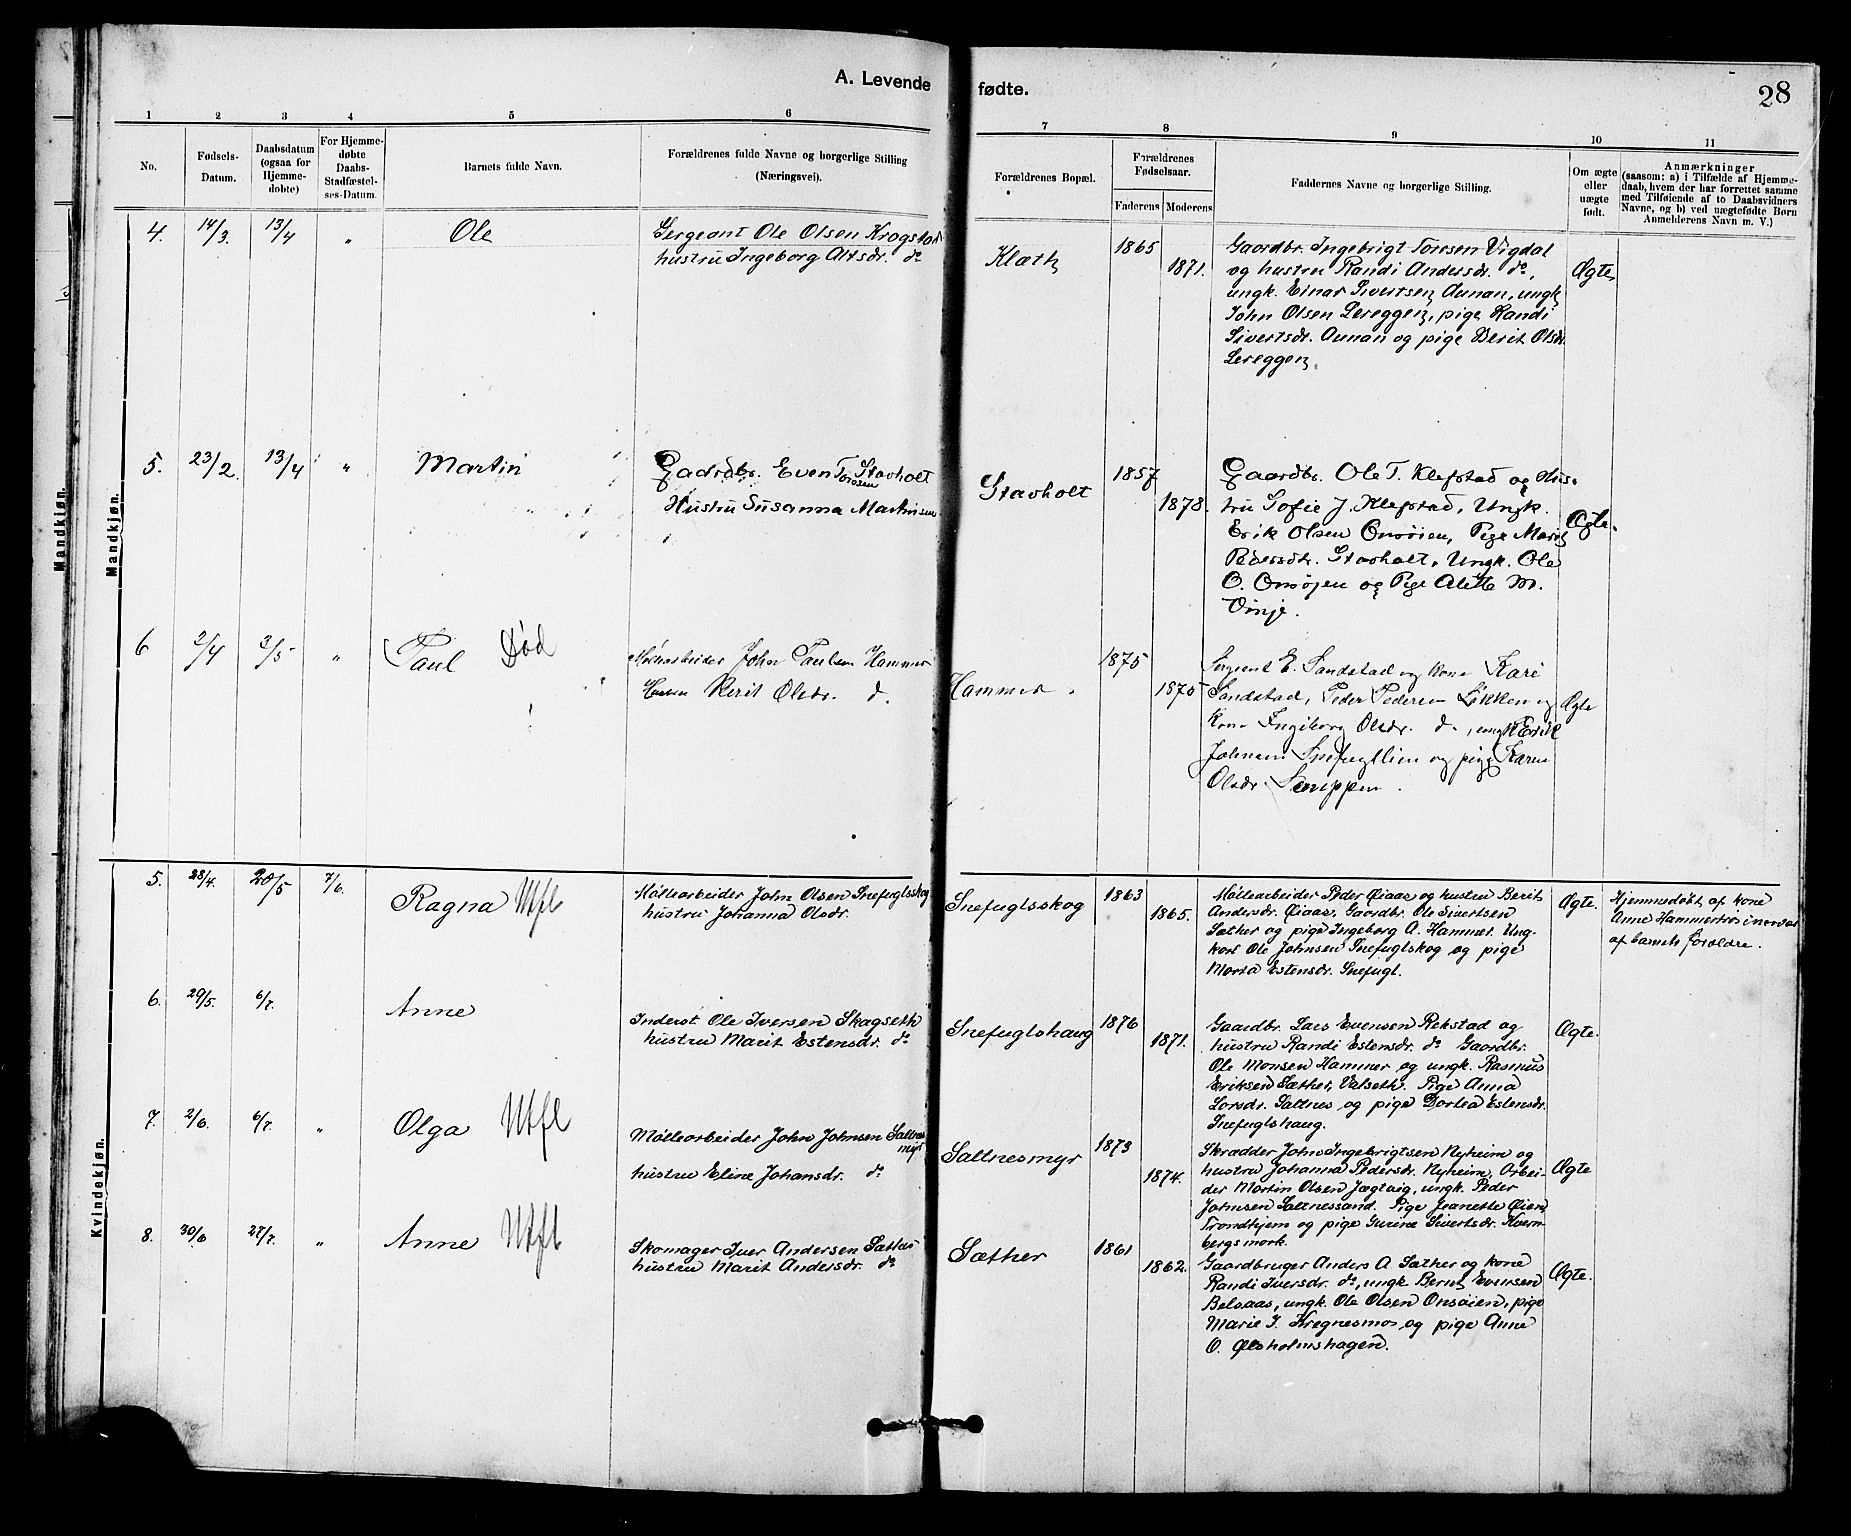 A. Levende fødte.
28
1 2 3 4 5 6 7 8 9 10 11
No.
Fødsels-
Datum.
Daabsdatum
(ogsaa for
Hjemme-
døbte)
For Hjemme-
døbte
Daabs-
Stadfæstel-
ses-Datum.
Barnets fulde Navn.
Forældrenes fulde Navne og borgerlige Stilling
(Næringsvei).
Forældrenes Bopæl.
Forældrenes
Fødselsaar.
Faderens Moderens
Faddernes Navne og borgerlige Stilling.
Om ægte
eller
uægte
født.
Anmærkninger
(saasom: a) i Tilfælde af Hjemme-
daab, hvem der har forrettet samme
med Tilføiende af to Daabsvidners
Navne, og b) ved uægtefødte Børn
Anmelderens Navn m. V.)
Mandkjøn.
Mandkjøn.
4. 14/3. 13/4 " Ole
Sergeant Ole Olsen Krogstad
hustru Ingeborg Altsdr. do
Klæth
1865
1871.
Gaardbr. Ingebrigt Toresen Vigdal
og hustru Randi Andersdr. do,
ungk. Einar Sivertsen Aunan, ungk
John Olsen Lereggen, pige Randi
Sivertsdr. Aunan og pige Berit Olsdr.
Lereggen.
Ægte
5. 23/2. 13/4 " Martin
Gadrdbr. Even Torosen Stavholt
Hustru Susanna Martinsen
Stavholt
1857
1878.
Gaardbr. Ole T. Klefstad og Hus-
tru Sofie J. Klefstad, Ungk.
Erik Olsen Onsöien, Pige Marit
Pedersdtr. Stavholt, Ungk. Ole
O. Onsöjen og Pige Alette M.
Vinje.
Ægte.
6 2/4 3/5 " Paul Død
Möllearbeider John Paulsen Hammer
Hustru Berit Olsdr. d.
Hammer.
1875
1875
Sergeant E. Sandstad og kone Kari
Sandstad, Peder Pedersen Løkken og
Kone Ingeborg Olsdr. d., ungk Erik
Johnsen Snefugllien og pige Karen
Olsdr.
Ægte
Kvindekjøn.
5. 28/4. 20/5 7/6. Ragna Utfl
Møllearbeider John Olsen Snefuglsskog
hustru Johanna Olsdr.
Snefuglsskog
1863
1865.
Møllearbeider Peder Øiaas og hustru Berit
Andersdr. Øiaas, Gaardbr. Ole Sivertsen
Sæther og pige Ingeborg A. Hammer. Ung-
karl Ole Johnsen Snefuglskog og pige
Marta Estensdr. Snefugl.
Ægte.
Hjemmedøbt af kone
Anne Hammertrø i nærvær
af barnets forældre.
6. 29/5. 6/7. Anne
Inderst Ole Iversen Skagseth
hustru Marit Estensdr. do
Snefuglshaug
1876
1871.
Gaardbr. Lars Evensen Rekstad og
hustru Randi Estensdr. do Gaardbr.
Ole Monsen Hammer og ungk. Rasmus
Eriksen Sæther, Valseth. Pige Anna
Larsdr. Saltnes og pige Dortea Estensdr.
Snefuglshaug.
Ægte.
7. 2/6. 6/7. " Olga Utfl
Møllearbeider John Johnsen Saltnes
myr
hustru Eline Johansdr. do
Saltnesmyr
1873
1874.
Skrædder John Ingebrigtsen Nyheim og
hustru Johanna Pedersdr. Nyheim, Arbei-
der Martin Olsen Jægtvig, ungk. Peder
Johnsen Saltnessand. Pige Jeanette Øien,
Trondhjem og pige Gurine Sivertsdr. Kvern-
bergsmork.
Ægte
8. 30/6 27/7. " Anne Utfl
Skomager Iver Andersen Sæther
hustru Marit Andersdr. do
Sæther
1861
1862.
Gaardbruger Anders A. Sæther og kone
Randi Iversdr. do, ungk Bernt Evensen
Belsaas, ungk. Ole Olsen Onsøien, pige
Marie J. Kregnesmo og pige Anne
O. Øksholmshagen.
Ægte.